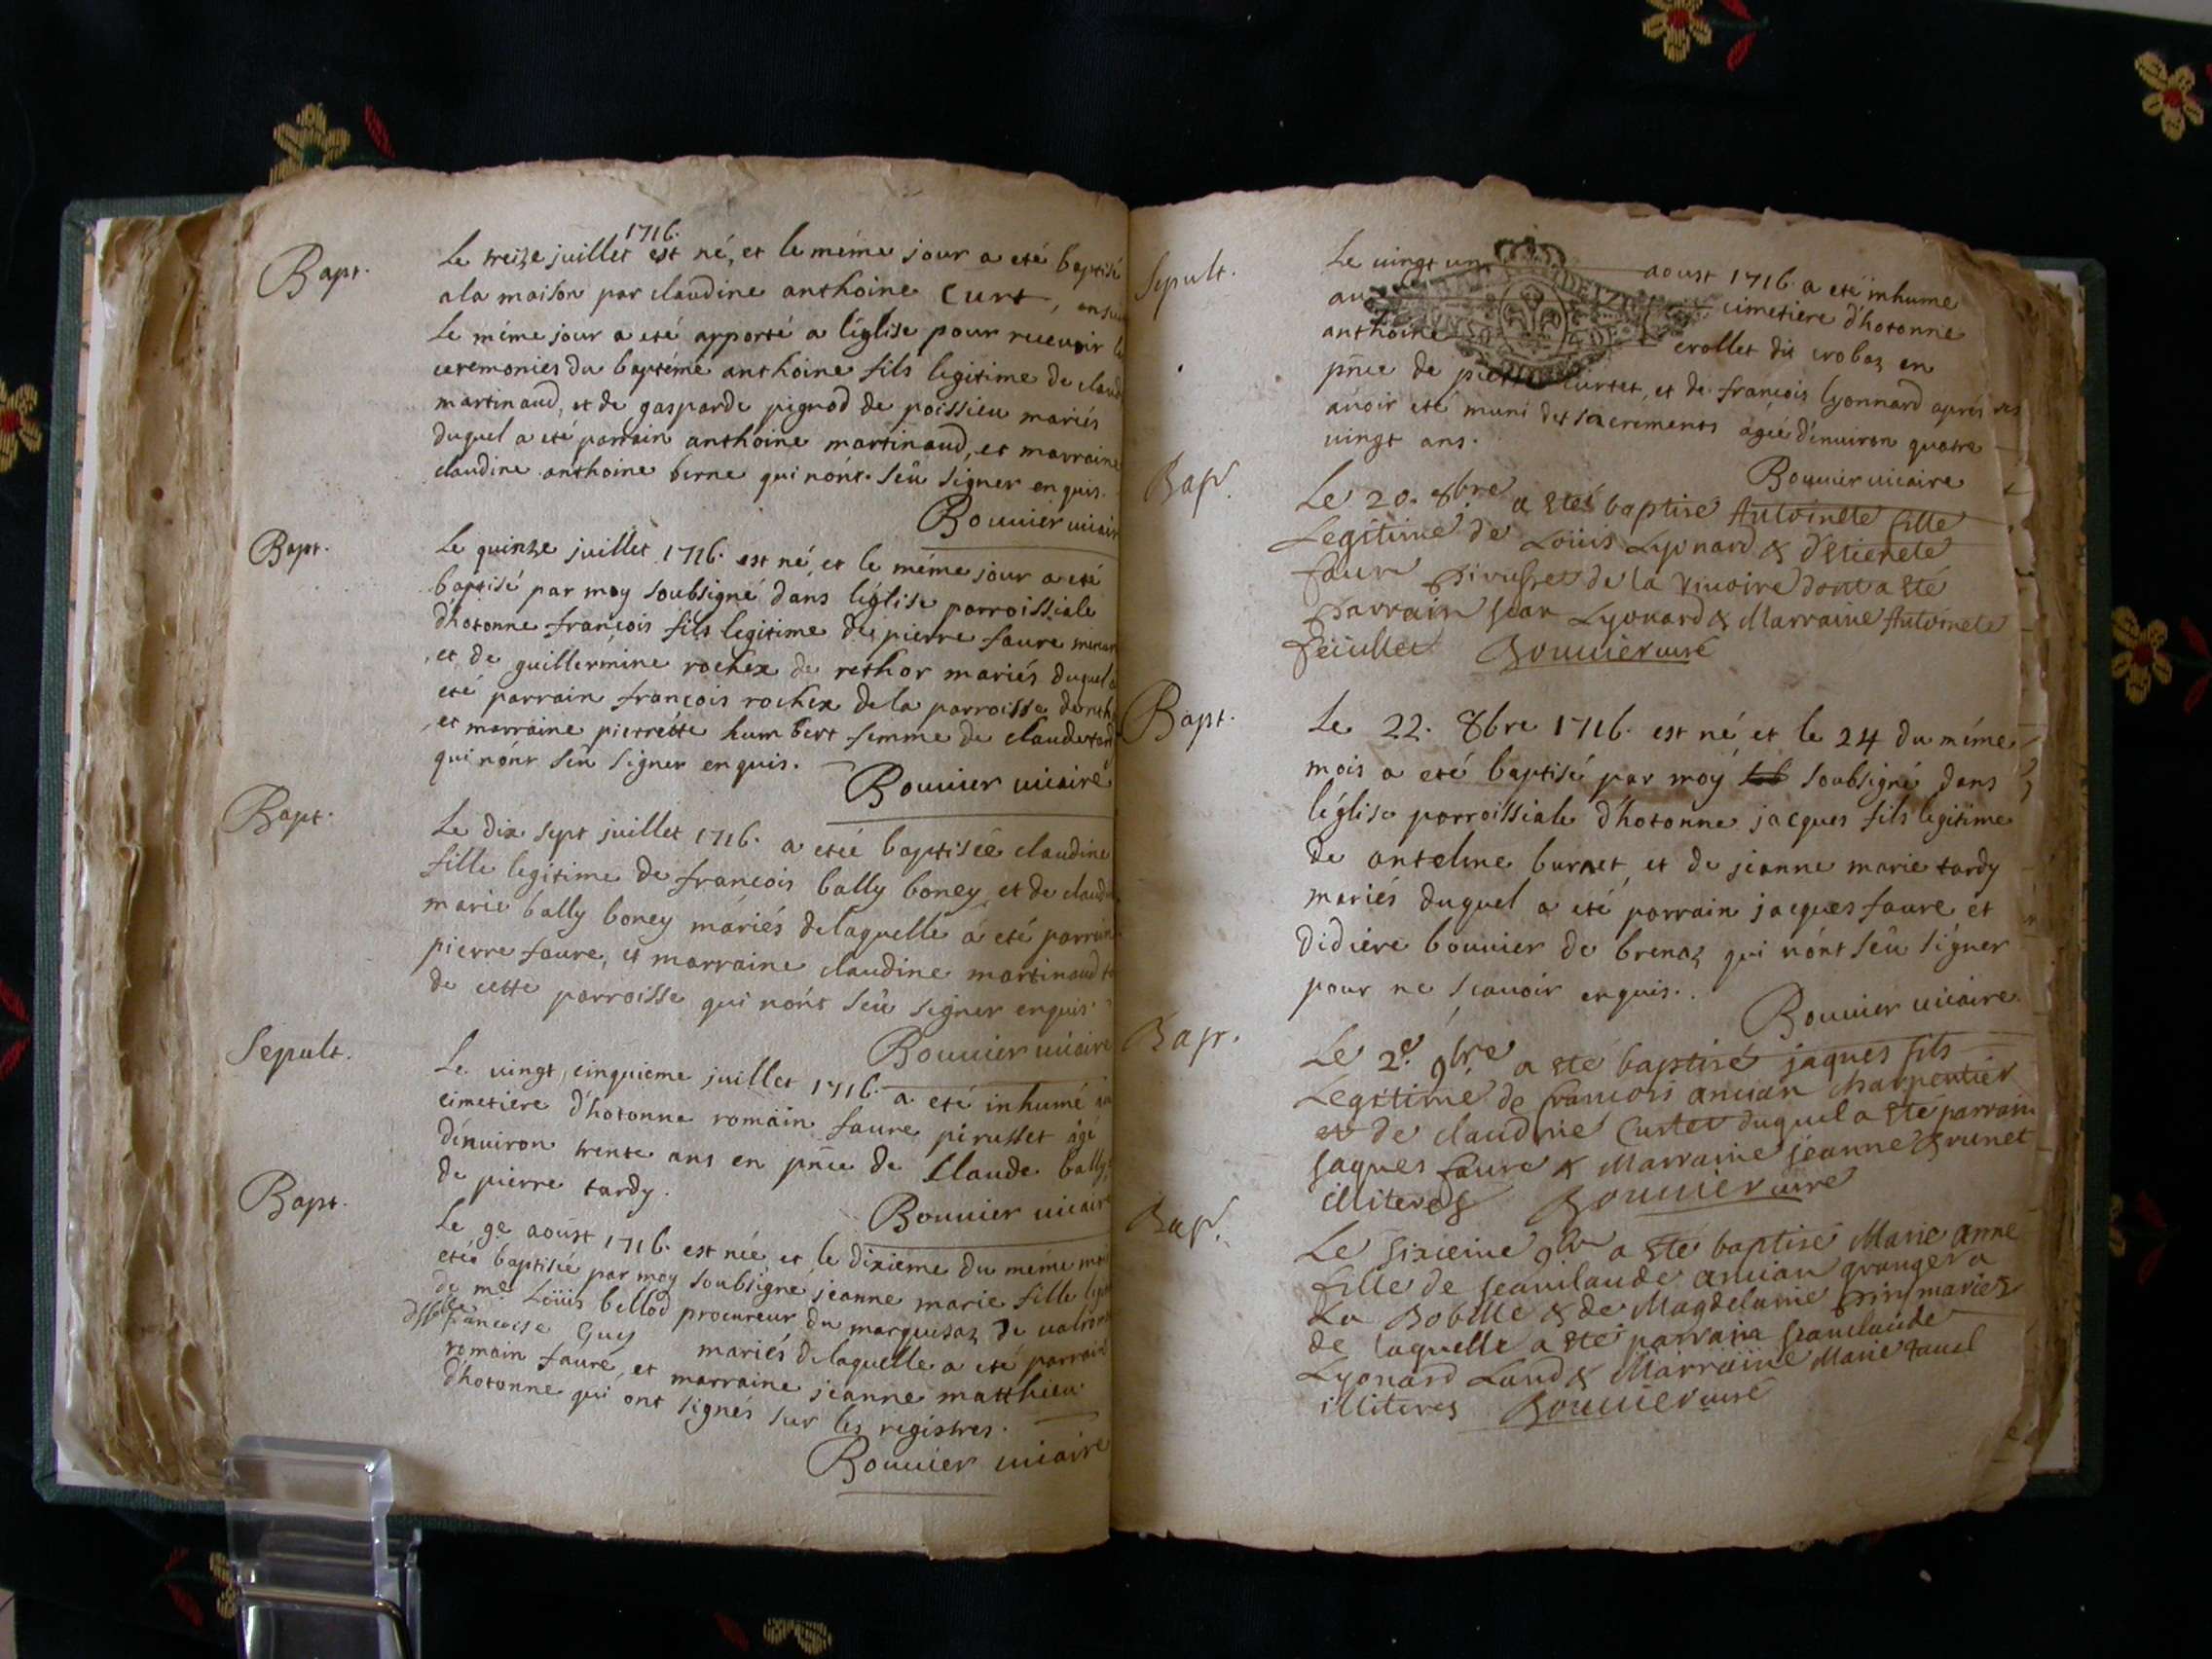 Bapt.
1716.
Le treize juillet est né, et le méme jour a eté baptisé
a la maison par claudine anthoine Curt,
Le méme jour a eté apporté a l'église pour recevoir
ceremonies du baptéme anthoine fils legitime de
martinaud, et de gasparde pignod de poissieu mariés
duquel a eté parrain anthoine martinaud, et marraine
claudine anthoine berne qui n'ont sëu signer enquis.
Bouuier
Bapt.
Le quinze juillet 1716. est né, et le méme jour a eté
baptisé par moy soubsigné dans l'église parroissiale
d'hotonne françois fils legitime de pierre faure
et de guillermine rochex de rethor mariés duquel a
eté parrain françois rochex de la parroisse
et marraine pierrette humbert femme de claude
qui n'ont sëu signer enquis.
Bouuier uicaire
Bapt.
Le dix sept juillet 1716. a eteé baptiseé claudine
fille legitime de françois bally boney, et de
marie bally boney mariés de laquelle a eté parrain
pierre faure, et marraine claudine martinaud
de cette parroisse qui n'ont sëu signer enquis.
Bouuier uicaire
Sepult.
Le uingt cinquieme juillet 1716. a eté inhumé
cimetiere d'hotonne romain faure pirusset agé
d'enuiron trente ans en pñce de Claude bally
de pierre tardy.
Bouuier uicaire
Bapt.
Le 9e aoust 1716. est neé, et le dixieme du méme
eteé baptiseé par moy soubsigné jeanne marie fille
de me. Loüis bellod procureur du marquisaz de
françoise Guy mariés de laquelle a eté parrain
romain faure, et marraine jeanne matthieu
d'hotonne qui ont signés sur les registres.
Bouuier uicaire
Sepult.
Le uingt un aoust 1716. a eté inhume
au cimetiere d'hotonne
anthoine crollet dit crobaz en
pñce de curtet, et de françois lyonnard aprés
auoir eté muni des sacrements ageé d'enuiron quatre
uingt ans.
Bouuier uicaire
Bap.
Le 20. 8bre a esté baptisé Antoinete fille
Legitime de Loüis Lyonard & d'Etienete
faure de la dont a sté
parrain jean Lyonard & Marraine Antoinete
Bouuier curé
Bapt.
Le 22. 8bre 1716. est né et le 24 du méme
mois a eté baptisé par moy soubsigné dans
l'église parroissiale d'hotonne jacques fils legitime
de antelme burnet, et de jeanne marie tardy
mariés duquel a eté parrain jacques faure et
didiere bouuier de brenaz qui n'ont sëu signer
pour ne sçauoir enquis.
Bouuier uicaire
Bap.
Le 2e. 9bre a sté baptisé jaques fils
Legitime de francois ancian charpentier
et de claudine Curtet duquel a sté parrain
jaques faure & Marraine jeanne Brunet
illiteres Bouuier curé
Bap.
Le sixieme 9bre a sté baptisé Marie anne
fille de jeanclaude ancian granger a
La & de Magdelaine mariez
de laquelle a sté parrain jeanclaude
Lyonard & Marraine Marie
illiteres Bouuier curé